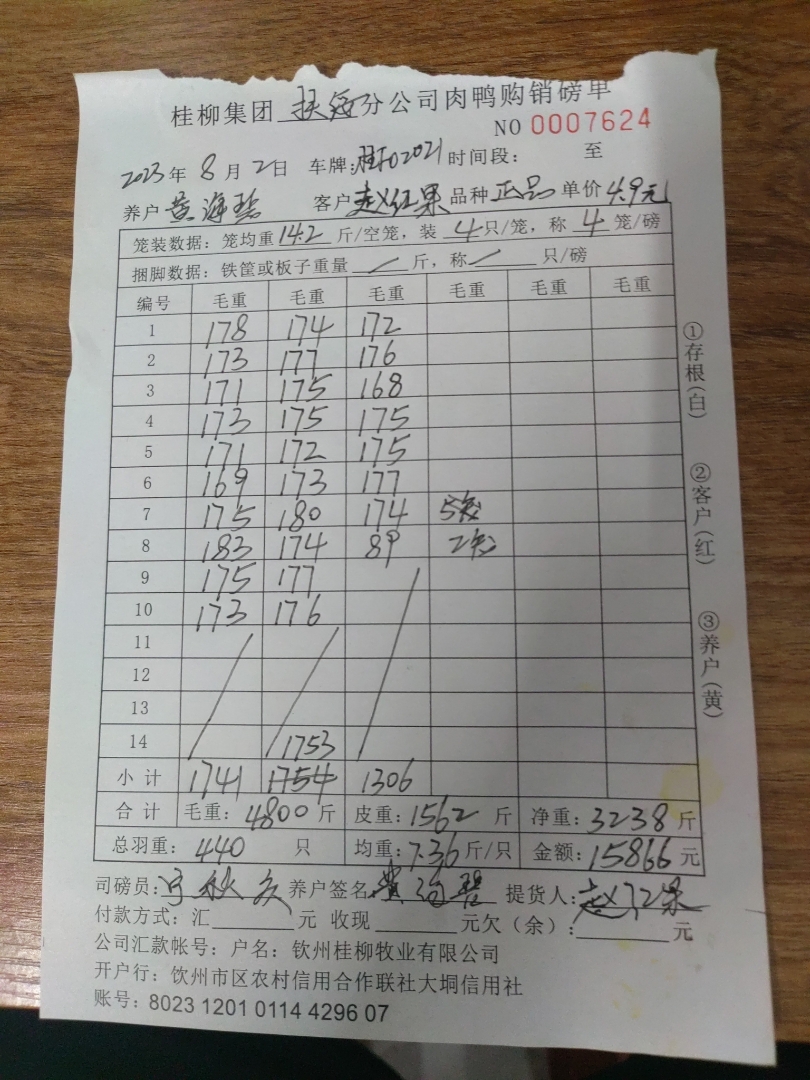 桂柳集团 扶绥分公司肉鸭购销磅单
NO 0007624
2023年 8月 2日 车牌: 2021 时间段: 至
养户 黄海碧 客户 赵红果 品种 正品 单价 4.9元
笼装数据:笼均重 14.2 斤/空笼,装 4 只/笼,称 4 笼/磅
捆脚数据:铁筐或板子重量 / 斤,称 / 只/磅
编号 毛重 毛重 毛重 毛重 毛重 毛重
1 178 174 172
2 173 177 176
3 171 175 168
4 173 175 175
5 171 172 175
6 169 173 177
7 175 180 174
8 183 174 89
9 175 177
10 173 176
11
12
13
14 1753
小计 1741 1754 1306
合计 毛重:4800斤 皮重:1562斤 净重:3238斤
总羽重:440 只 均重:7.36斤/只 金额:15866元
司磅员: 养户签名 黄海碧 提货人:赵红果
付款方式:汇 元 收现 元欠(余): 元
公司汇款帐号:户名:钦州桂柳牧业有限公司
开户行:钦州市区农村信用合作联社大垌信用社
账号:8023 1201 0114 4296 07
①存根(白)
②客户(红)
③养户(黄)